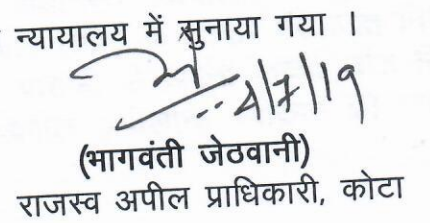 न्यायालय में सुनाया गया ।
4/7/19
(भागवंती जेठवानी)
राजस्व अपील प्राधिकारी, कोटा